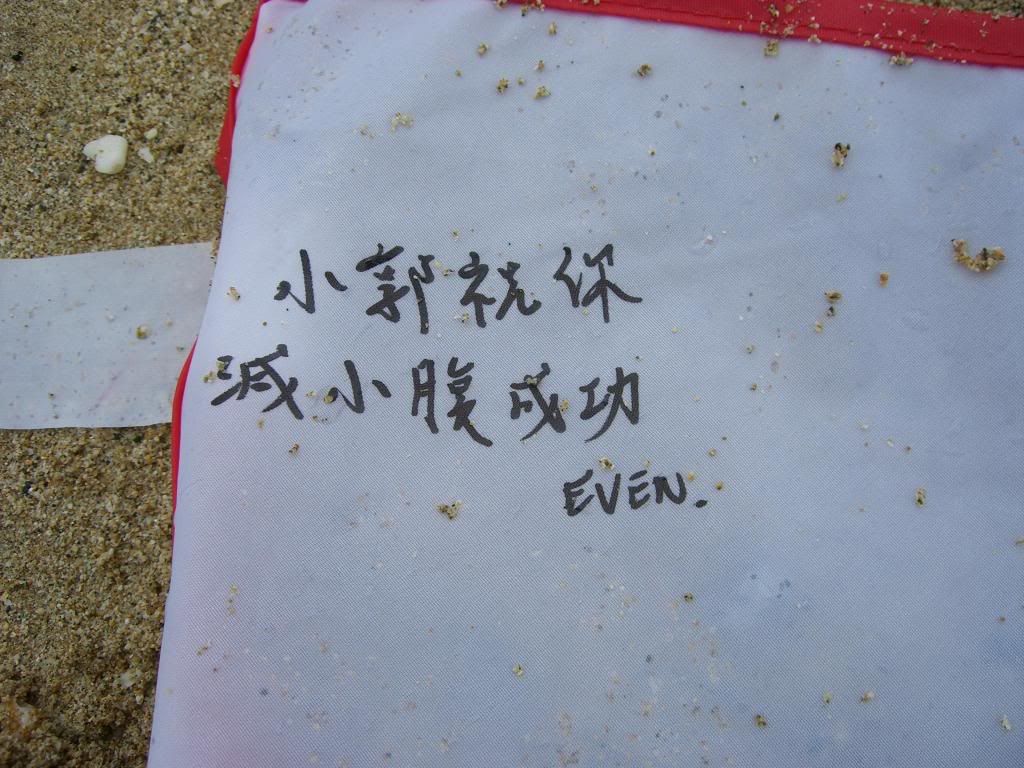 小郭祝你
減小腹成功
EVEN.